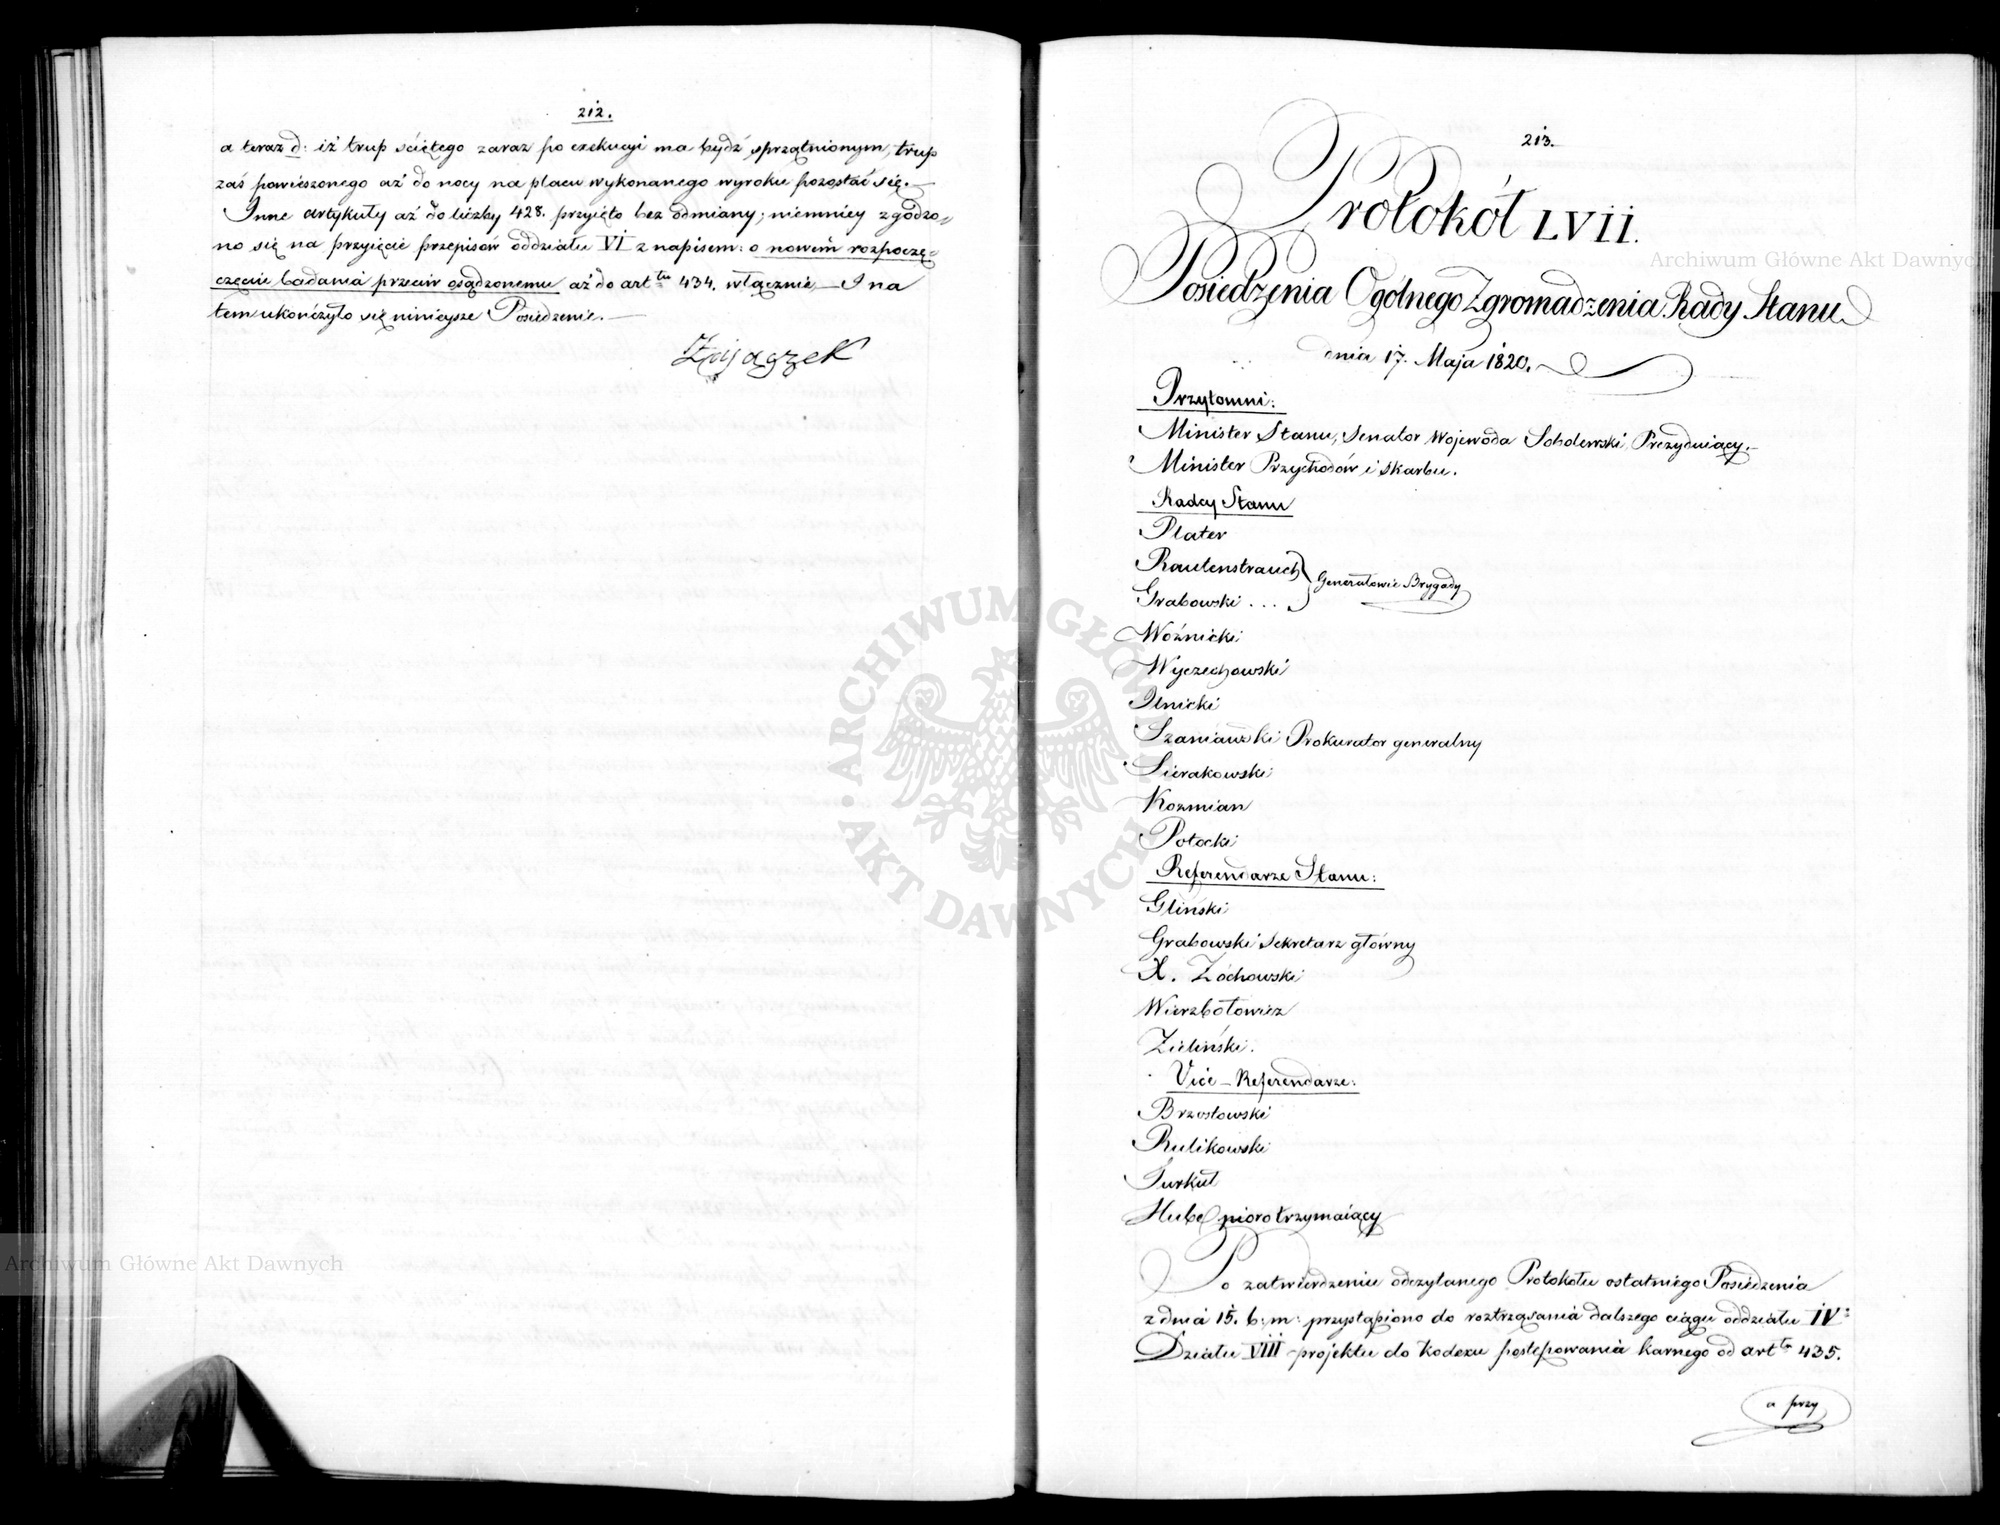 212.
a teraz d: iż trup ściętego zaraz po exekucyi ma bydź sprzątnionym, trup
zaś powieszonego aż do nocy na placu wykonanego wyroku pozostać się.—
Inne artykuły aż do liczby 428. przyięto bez odmiany; niemniey zgodzo-
no się na przyięcie przepisów oddziału VI z napisem: o nowem rozpoczę-
częcie badania przeciw osądzonemu aż do art:łu 434. włącznie,— I na
tem ukończyło się ninieysze Posiedzenie.—
Zaiączek
213.
Protokół LVII.
Posiedzenia Ogólnego Zgromadzenia Rady Stanu
dnia 17. Maja 1820.
Przytomni:
Minister Stanu, Senator Wojewoda Sobolewski, Prezyduiący.—
Minister Przychodów i Skarbu.
Radcy Stanu
Plater
Rautenstrauch
Grabowski ... } Generałowie Brygady
Woźnicki
Wyczechowski
Ilnicki
Szaniawski Prokurator generalny
Sierakowski
Kozmian
Potocki
Referendarze Stanu:
Gliński
Grabowski Sekretarz główny
X. Zóchowski
Wierzbołowicz
Zieliński.
Vice-Referendarze:
Brzostowski
Rulikowski
Turkuł
Hube pioro trzymaiący
Po zatwierdzeniu odczytanego Protokółu ostatniego Posiedzenia
z dnia 15. b: m: przystąpiono do roztrząsania dalszego ciągu oddziału IV:
Działu VIII projektu do Kodexu postępowania karnego od art:łu 435.
a przy
Archiwum Główne Akt Dawnych
Archiwum Główne Akt Dawnych
• ARCHIWUM GŁÓWNE • AKT DAWNYCH